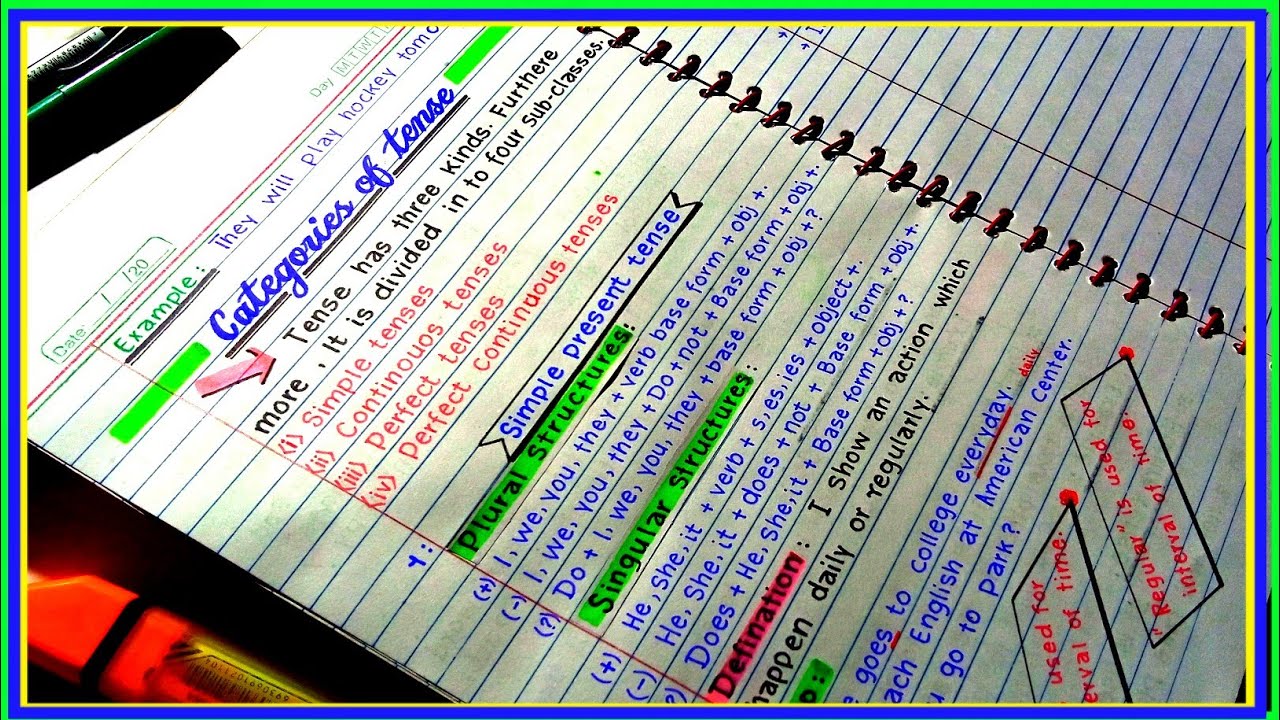 Day M T W T
Date: / /20
Example: They will play hockey
Categories of tense
Tense has three kinds. Furthere
more , It is divided in to four sub-classes.
(i) Simple tenses
(ii) Continouos tenses
(iii) Perfect tenses
(iv) Perfect continuous tenses
1: Simple present tense
Plural Structures:
(+) I, we, you, they + verb base form + obj +.
(-) I, we, you, they + Do + not + Base form + obj +.
(?) Do + I, we, you, they + base form + obj + ?
Singular Structures:
(+) He, She, it + verb + s, es, ies + object +.
(-) He, She, it + does + not + Base form + obj +.
?) Does + He, She, it + Base form + obj + ?
Defination: I show an action which
happen daily or regularly.
goes to college everyday. daily
English at American center.
go to Park?
used for
of time.
"Regular" is used for
interval of time.